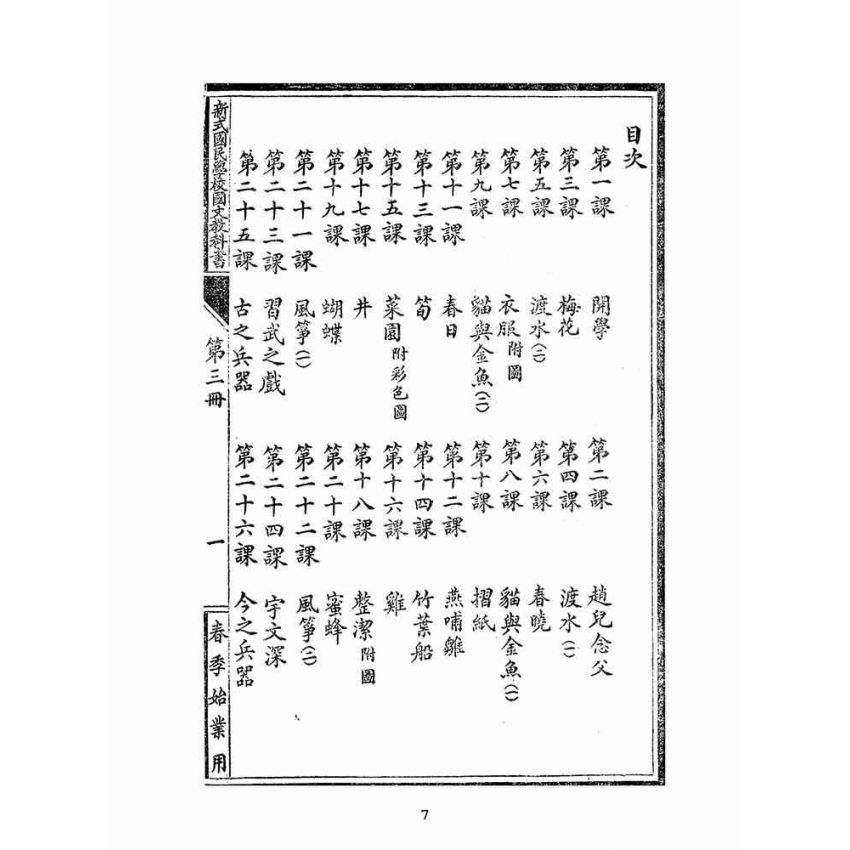 目次
第一課　開學　第二課　趙兒念父
第三課　梅花　第四課　渡水(一)
第五課　渡水(二)　第六課　春曉
第七課　衣服附圖　第八課　貓與金魚(一)
第九課　貓與金魚(二)　第十課　摺紙
第十一課　春日　第十二課　燕哺雛
第十三課　筍　第十四課　竹葉船
第十五課　菜園附彩色圖　第十六課　雞
第十七課　井　第十八課　整潔附圖
第十九課　蝴蝶　第二十課　蜜蜂
第二十一課　風箏(一)　第二十二課　風箏(二)
第二十三課　習武之戲　第二十四課　宇文深
第二十五課　古之兵器　第二十六課　今之兵器
新式國民學校國文教科書　第三冊　一　春季始業用
7